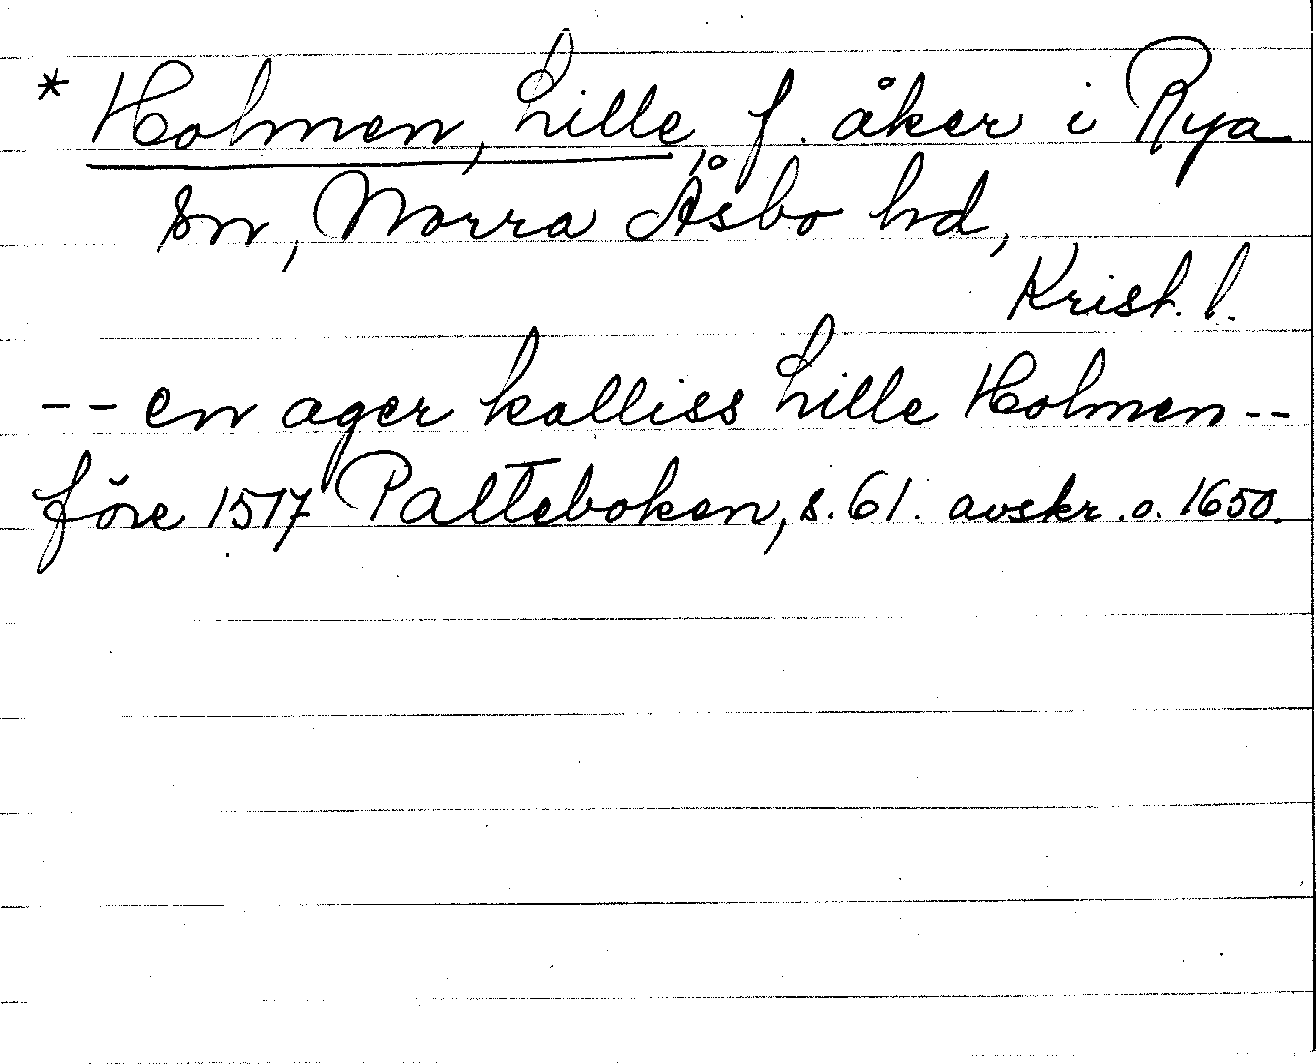 * Holmen, Lille, f. åker i Rya
sn, Norra Åsbo hd,
Krist. l.
-- en ager kalliss Lille Holmen --
före 1517 Palteboken, s. 61. avskr. o. 1650.